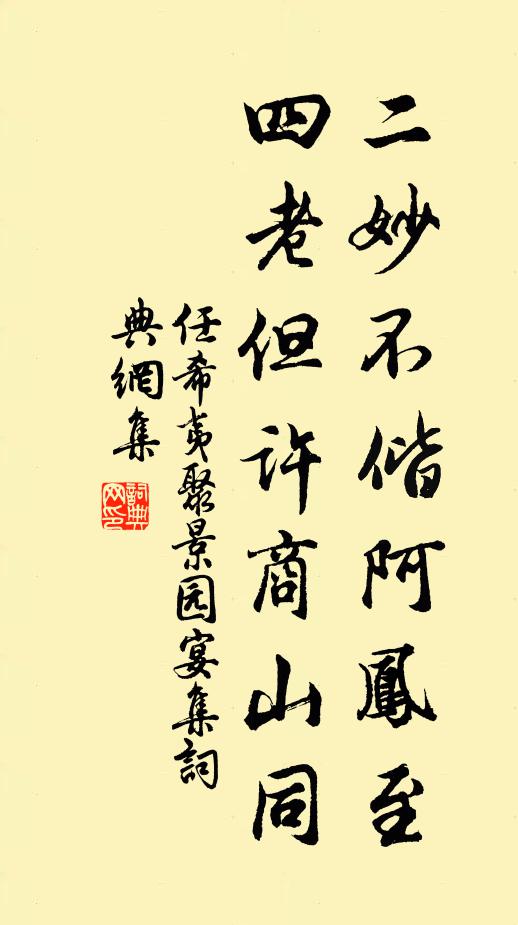 二妙不偕阿鳳至
四老但许商山同
任希夷聚景园宴集詞
典網集
詞典网印